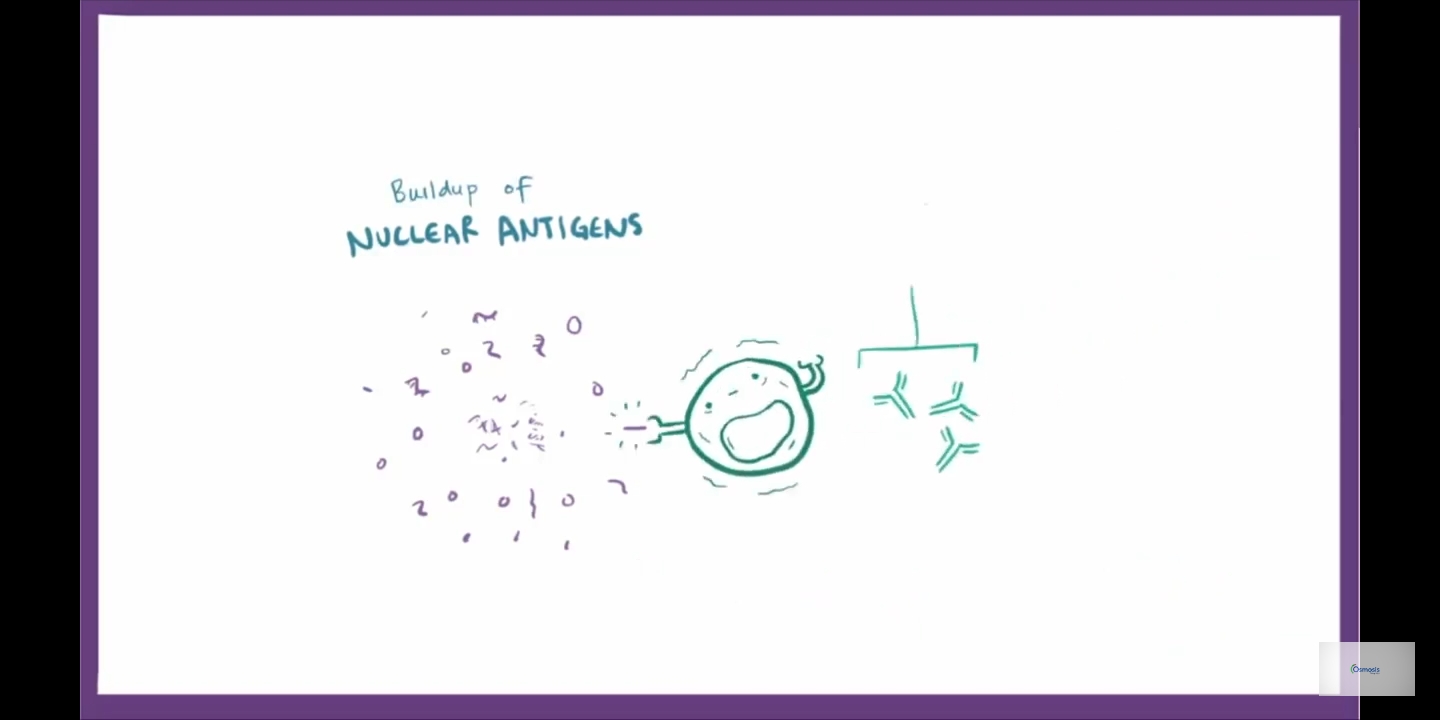 Buildup of
NUCLEAR ANTIGENS
Osmosis